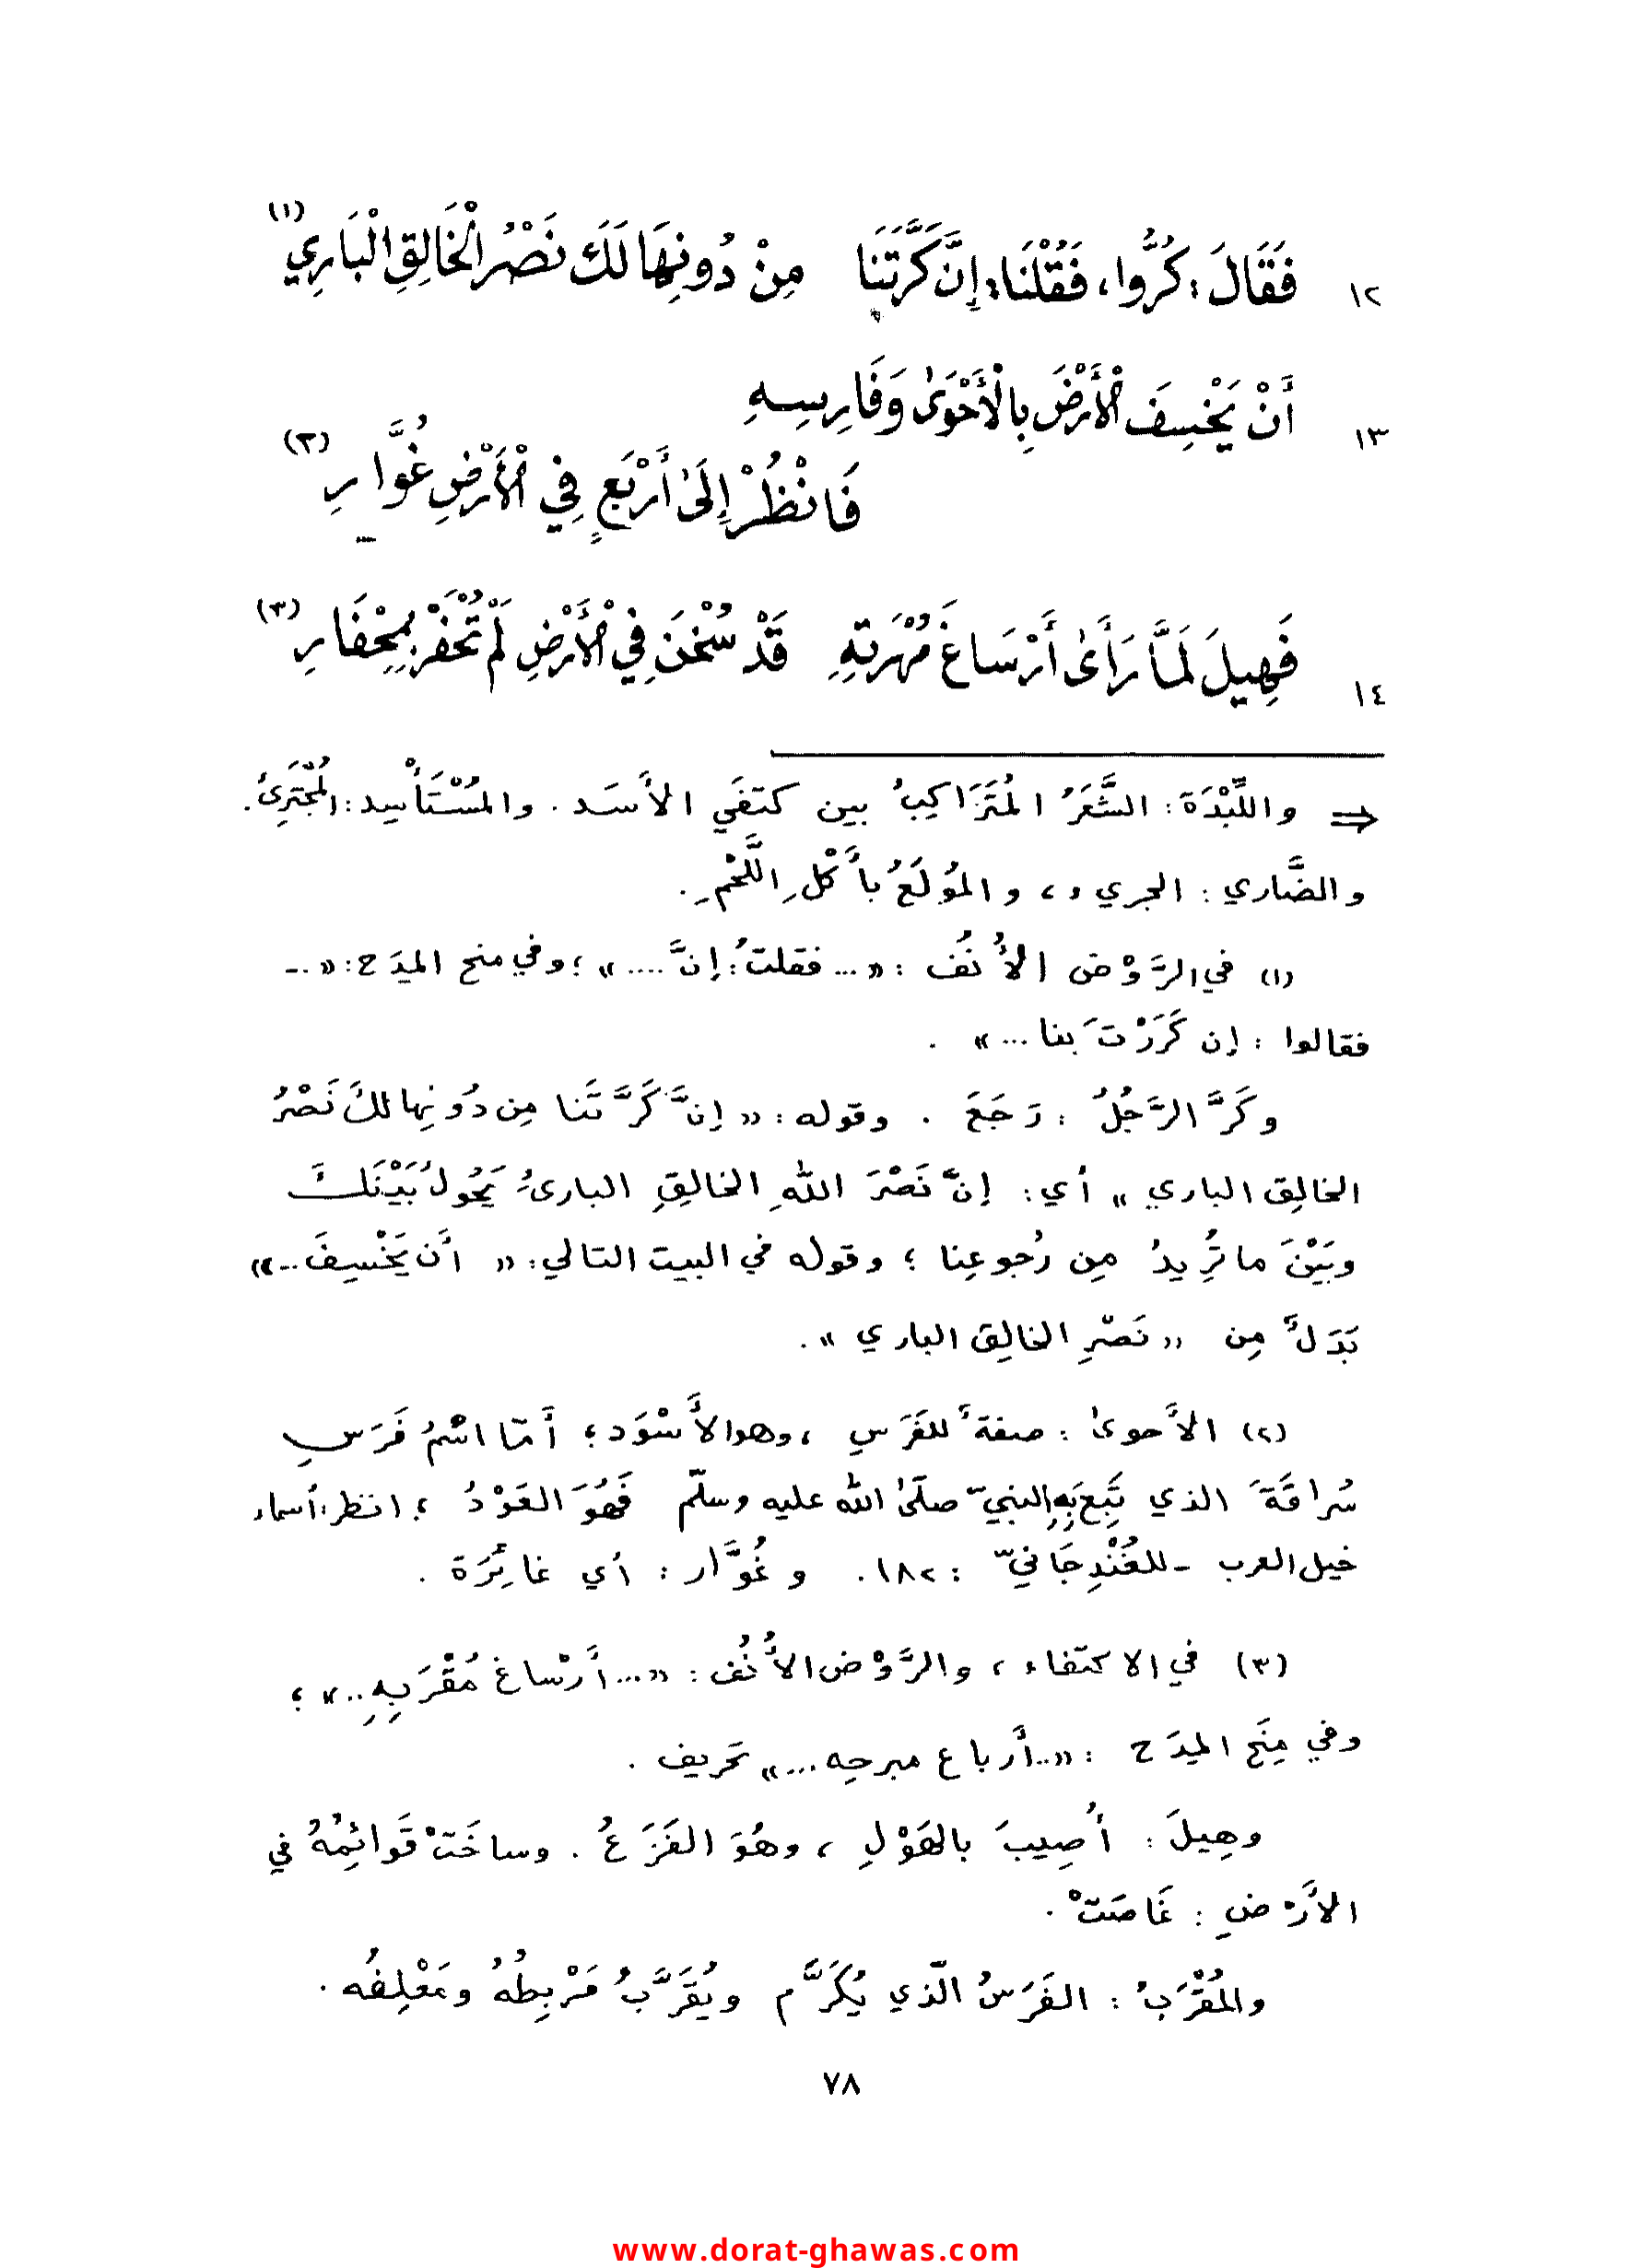 ١٢ فَقَالَ: كُرُّوا، فَقُلْنَا: إِنَّ كَرَّتَنَا مِنْ دُونِهَا لَكَ نَصْرُ الْخَالِقِ الْبَارِي (١)
١٣ أَنْ يَخْسِفَ الْأَرْضَ بِالْأَحْوَىٰ وَفَارِسِهِ
فَانْظُرْ إِلَىٰ أَرْبَعٍ فِي الْأَرْضِ غُوَّارِ (٢)
١٤ فَهِيلَ لَمَّا رَأَىٰ أَرْسَاغَ مُهْرَتِهِ قَدْ سُخْنَ فِي الْأَرْضِ لَمْ تُحْفَرْ بِمِحْفَارِ (٣)
⇐ واللِّبْدَة: الشَّعَرُ المُتَرَاكِبُ بين كتفَي الأسَد. والمُسْتَأْسِد: المُجْتَرِئُ.
والضَّاري: الجريء، والمُولَعُ بأَكْلِ اللَّحْمِ.
(١) في الرَّوْض الأُنُف: «... فقلتُ: إنَّ ....»؛ وفي منح المِدَح: «..
فقالوا: إن كَرَرْتَ بنا ...».
وكَرَّ الرَّجُلُ: رَجَعَ. وقوله: «إِنَّ كَرَّتَنا مِن دُونِها لكَ نَصْرُ
الخالِق الباري» أي: إنَّ نَصْرَ اللهِ الخالِقِ البارئُ يَحُولُ بَيْنَكَ
وبَيْنَ ما تُرِيدُ مِن رُجوعِنا؛ وقوله في البيت التالي: «أَن يَخْسِفَ ..»
بَدَلٌ مِن «نَصْرِ الخالِق الباري».
(٢) الأَحوىٰ: صفةٌ للفَرَسِ، وهو الأَسْوَد؛ أَمّا اسْمُ فَرَسِ
سُراقَةَ الذي تَبِعَ بَهِ النبيّ صلّىٰ الله عليه وسلّم فَهُوَ العَوْدُ؛ انظر: أسماء
خيل العرب - للغُنْدِجَانيّ: ١٨٢. وغُوَّار: أي غائِرَة.
(٣) في الاكتفاء، والرَّوْض الأُنُف: «... أَرْساغ مُقْرَبِهِ ..»؛
وفي مِنَح المِدَح: «.. أَرباع مبرحه ...» تحريف.
وهِيلَ: أُصِيبَ بالهَوْلِ، وهُوَ الفَزَعُ. وساخَتْ قَوائِمُهُ في
الأَرْضِ: غَاصَتْ.
والمُقْرَبُ: الفَرَسُ الّذي يُكَرَّم ويُقَرَّبُ مَرْبِطُهُ ومَعْلِفُه.
٧٨
www.dorat-ghawas.com